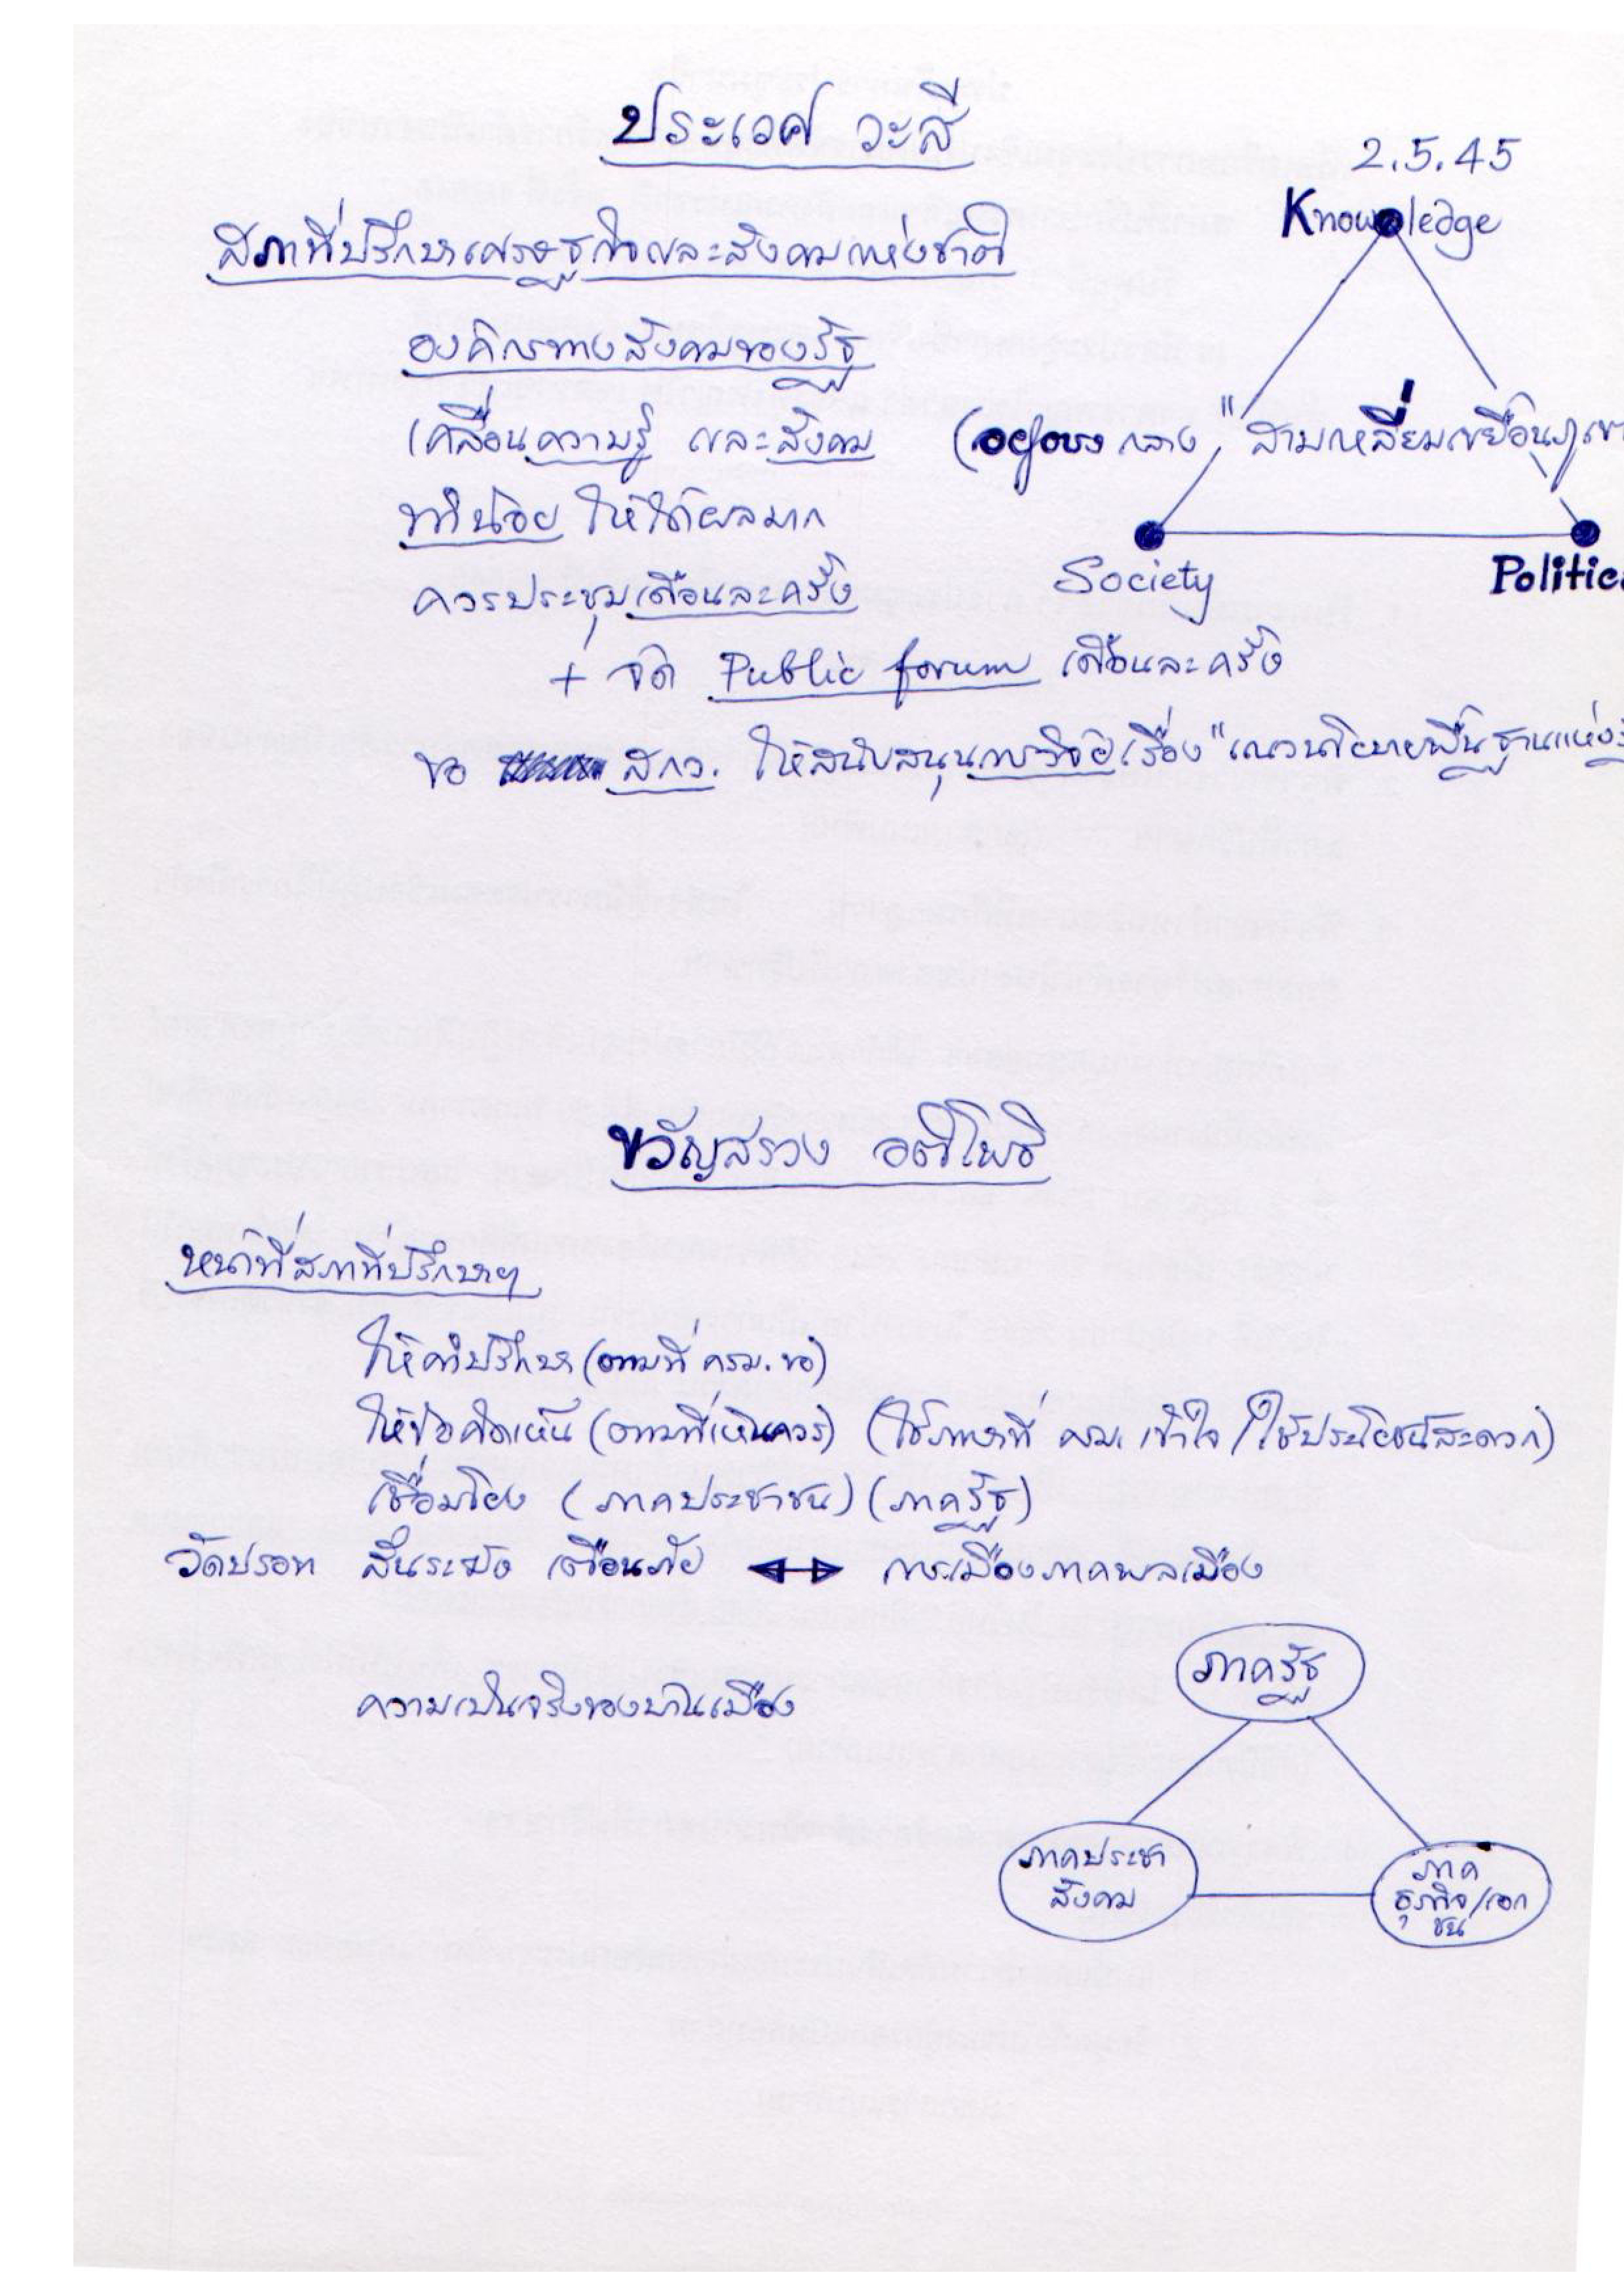 ประเวศ วะสี
2.5.45
Knowledge
สภาที่ปรึกษาเศรษฐกิจและสังคมแห่งชาติ
องค์กรทางสังคมของรัฐ
เคลื่อนความรู้ และสังคม (อยู่ตรงกลาง "สามเหลี่ยมเขยื้อนภูเขา
ทำน้อย ให้ได้ผลมาก
Society
Politic
ควรประชุมเดือนละครั้ง
+ จัด Public forum เดือนละครั้ง
ขอ สกว. ให้สนับสนุนการวิจัยเรื่อง "แนวนโยบายพื้นฐานแห่งรั
ขวัญสรวง อติโพธิ
หน้าที่สภาที่ปรึกษาฯ
ให้คำปรึกษา (ตามที่ ครม. ขอ)
ให้ข้อคิดเห็น (ตามที่เห็นควร) (ใช้ภาษาที่ ครม. เข้าใจ / ใช้ประโยชน์สะดวก)
เชื่อมโยง (ภาคประชาชน) (ภาครัฐ)
วัดปรอท สั่นระฆัง เตือนภัย การเมืองภาคพลเมือง
ภาครัฐ
ความเป็นจริงของบ้านเมือง
ภาคประชา
สังคม
ภาค
ธุรกิจ/เอก
ชน